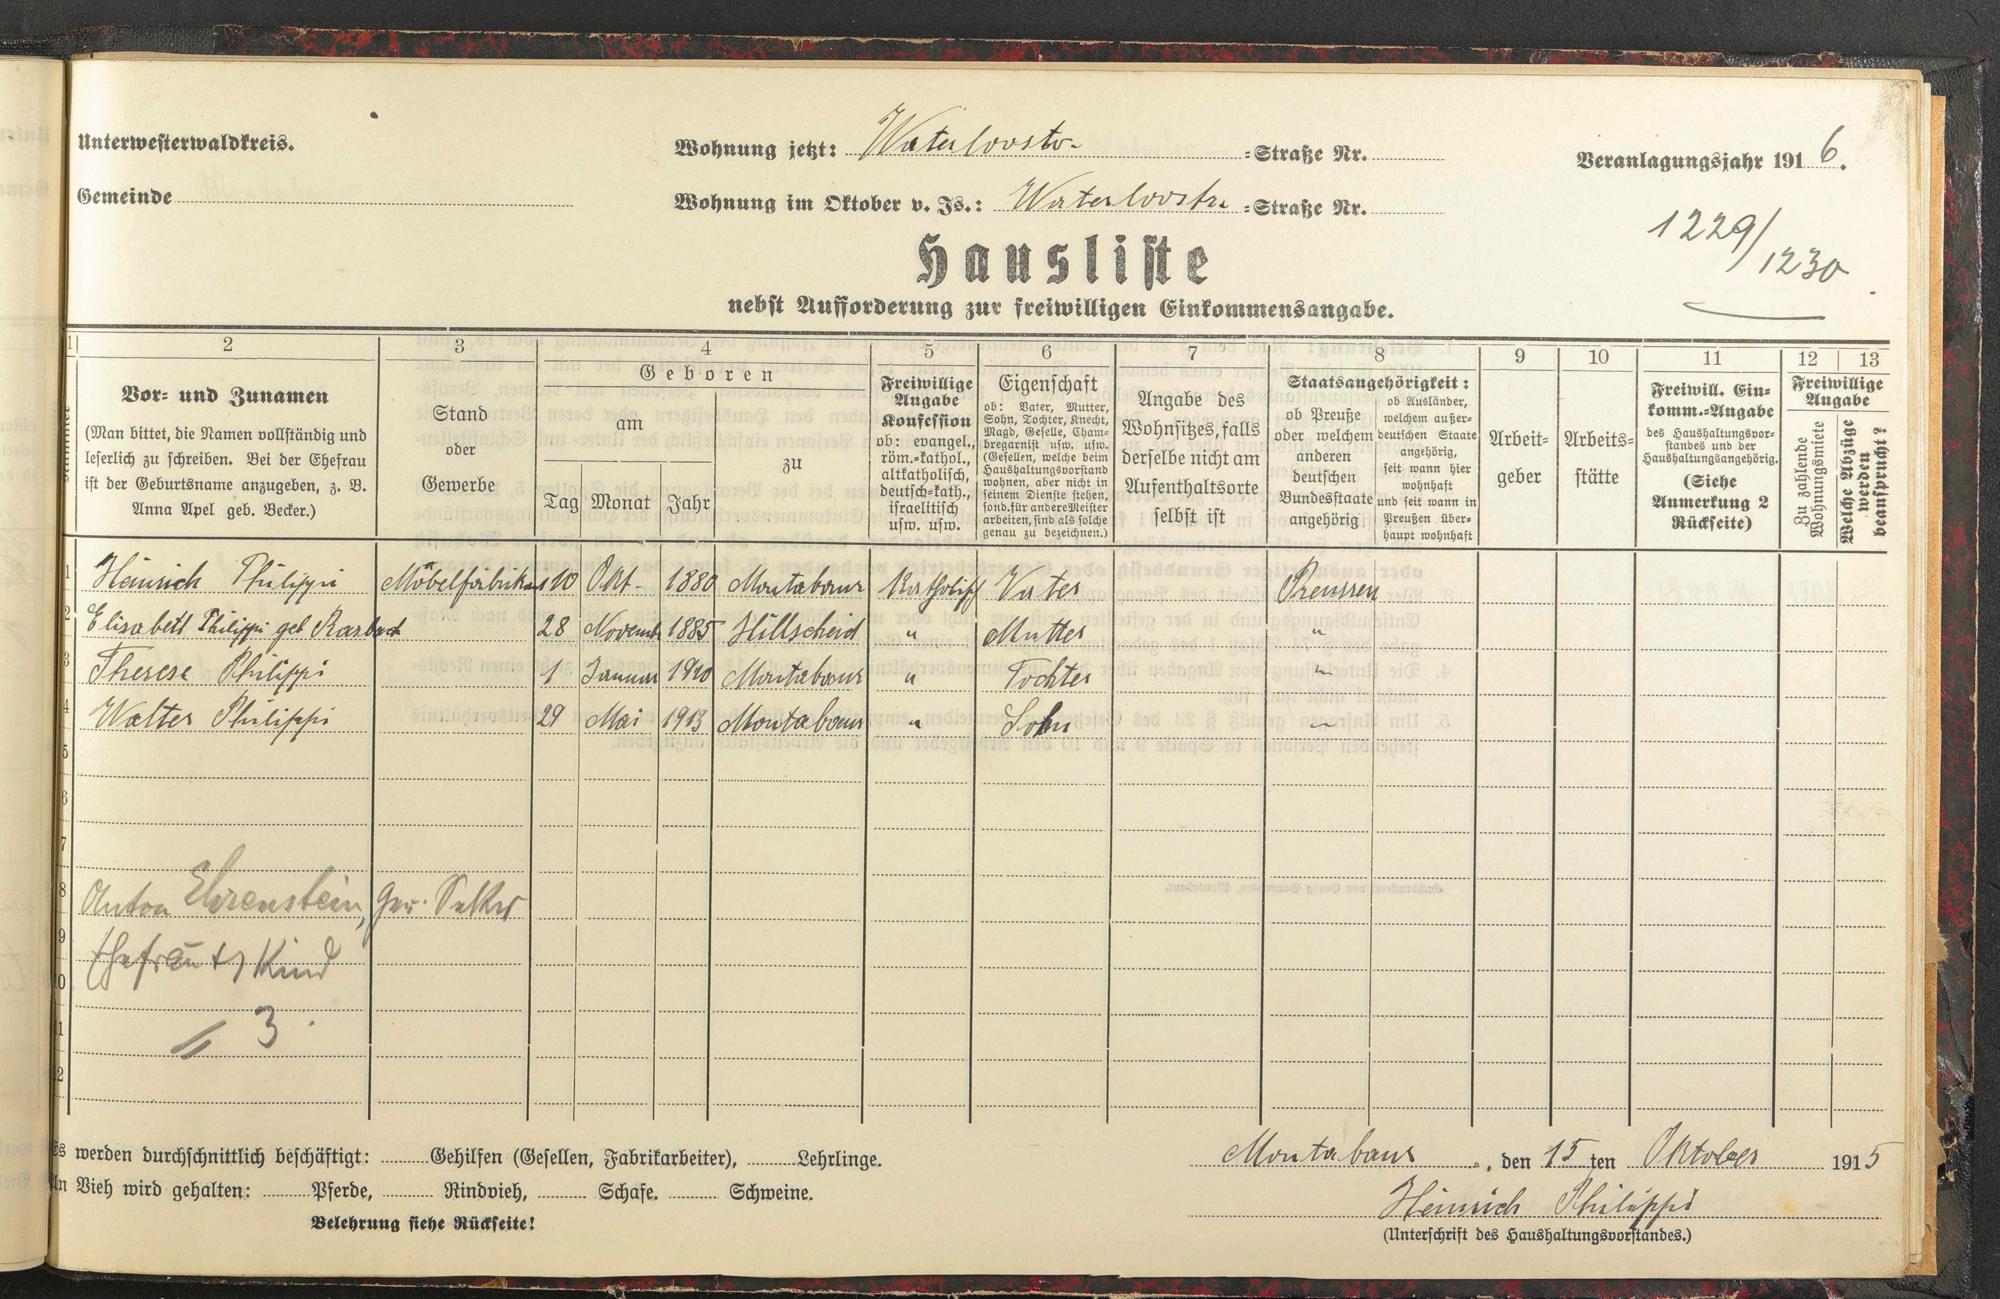 Unterwesterwaldkreis.
Gemeinde
Wohnung jetzt: Waterloostr- =Straße Nr.
Wohnung im Oktober v. Js.: Waterloostr. =Straße Nr.
Veranlagungsjahr 1916.
1229/
1230
Hausliste
nebst Aufforderung zur freiwilligen Einkommensangabe.
1 2 3 4 5 6 7 8 9 10 11 12 13
Nummer
Vor- und Zunamen
(Man bittet, die Namen vollständig und
leserlich zu schreiben. Bei der Ehefrau
ist der Geburtsname anzugeben, z. B.
Anna Apel geb. Becker.)
Stand
oder
Gewerbe
Geboren
am
Tag Monat Jahr
zu
Freiwillige
Angabe
Konfession
ob: evangel.,
röm.-kathol.,
altkatholisch,
deutsch-kath.,
israelitisch
usw. usw.
Eigenschaft
ob: Vater, Mutter,
Sohn, Tochter, Knecht,
Magd, Geselle, Cham-
bregarnist usw. usw.
(Gesellen, welche beim
Haushaltungsvorstand
wohnen, aber nicht in
seinem Dienste stehen,
sond. für andere Meister
arbeiten, sind als solche
genau zu bezeichnen.)
Angabe des
Wohnsitzes, falls
derselbe nicht am
Aufenthaltsorte
selbst ist
Staatsangehörigkeit:
ob Preuße
oder welchem
anderen
deutschen
Bundesstaate
angehörig
ob Ausländer,
welchem außer-
deutschen Staate
angehörig,
seit wann hier
wohnhaft
und seit wann in
Preußen über-
haupt wohnhaft
Arbeit-
geber
Arbeits-
stätte
Freiwill. Ein-
komm.-Angabe
des Haushaltungsvor-
standes und der
Haushaltungsangehörig.
(Siehe
Anmerkung 2
Rückseite)
Freiwillige
Angabe
Zu zahlende
Wohnungsmiete
Welche Abzüge
werden
beansprucht?
1 Heinrich Philippi Möbelfabrikant 10 Okt- 1880 Montabaur Katholisch Vater Preussen
2 Elisabeth Philippi geb Rasbach 28 Novemb 1885 Hillscheid " Mutter "
3 Therese Philippi 1 Januar 1910 Montabaur " Tochter "
4 Walter Philippi 29 Mai 1913 Montabaur " Sohn "
5
6
7
8 Anton Ehrenstein,
9 Ehefrau + 1 Kind
10
11 3.
12
Es werden durchschnittlich beschäftigt: Gehilfen (Gesellen, Fabrikarbeiter), Lehrlinge.
An Vieh wird gehalten: Pferde, Rindvieh, Schafe. Schweine.
Belehrung siehe Rückseite!
Montabaur, den 15ten Oktober 1915
Heinrich Philippi
(Unterschrift des Haushaltungsvorstandes.)